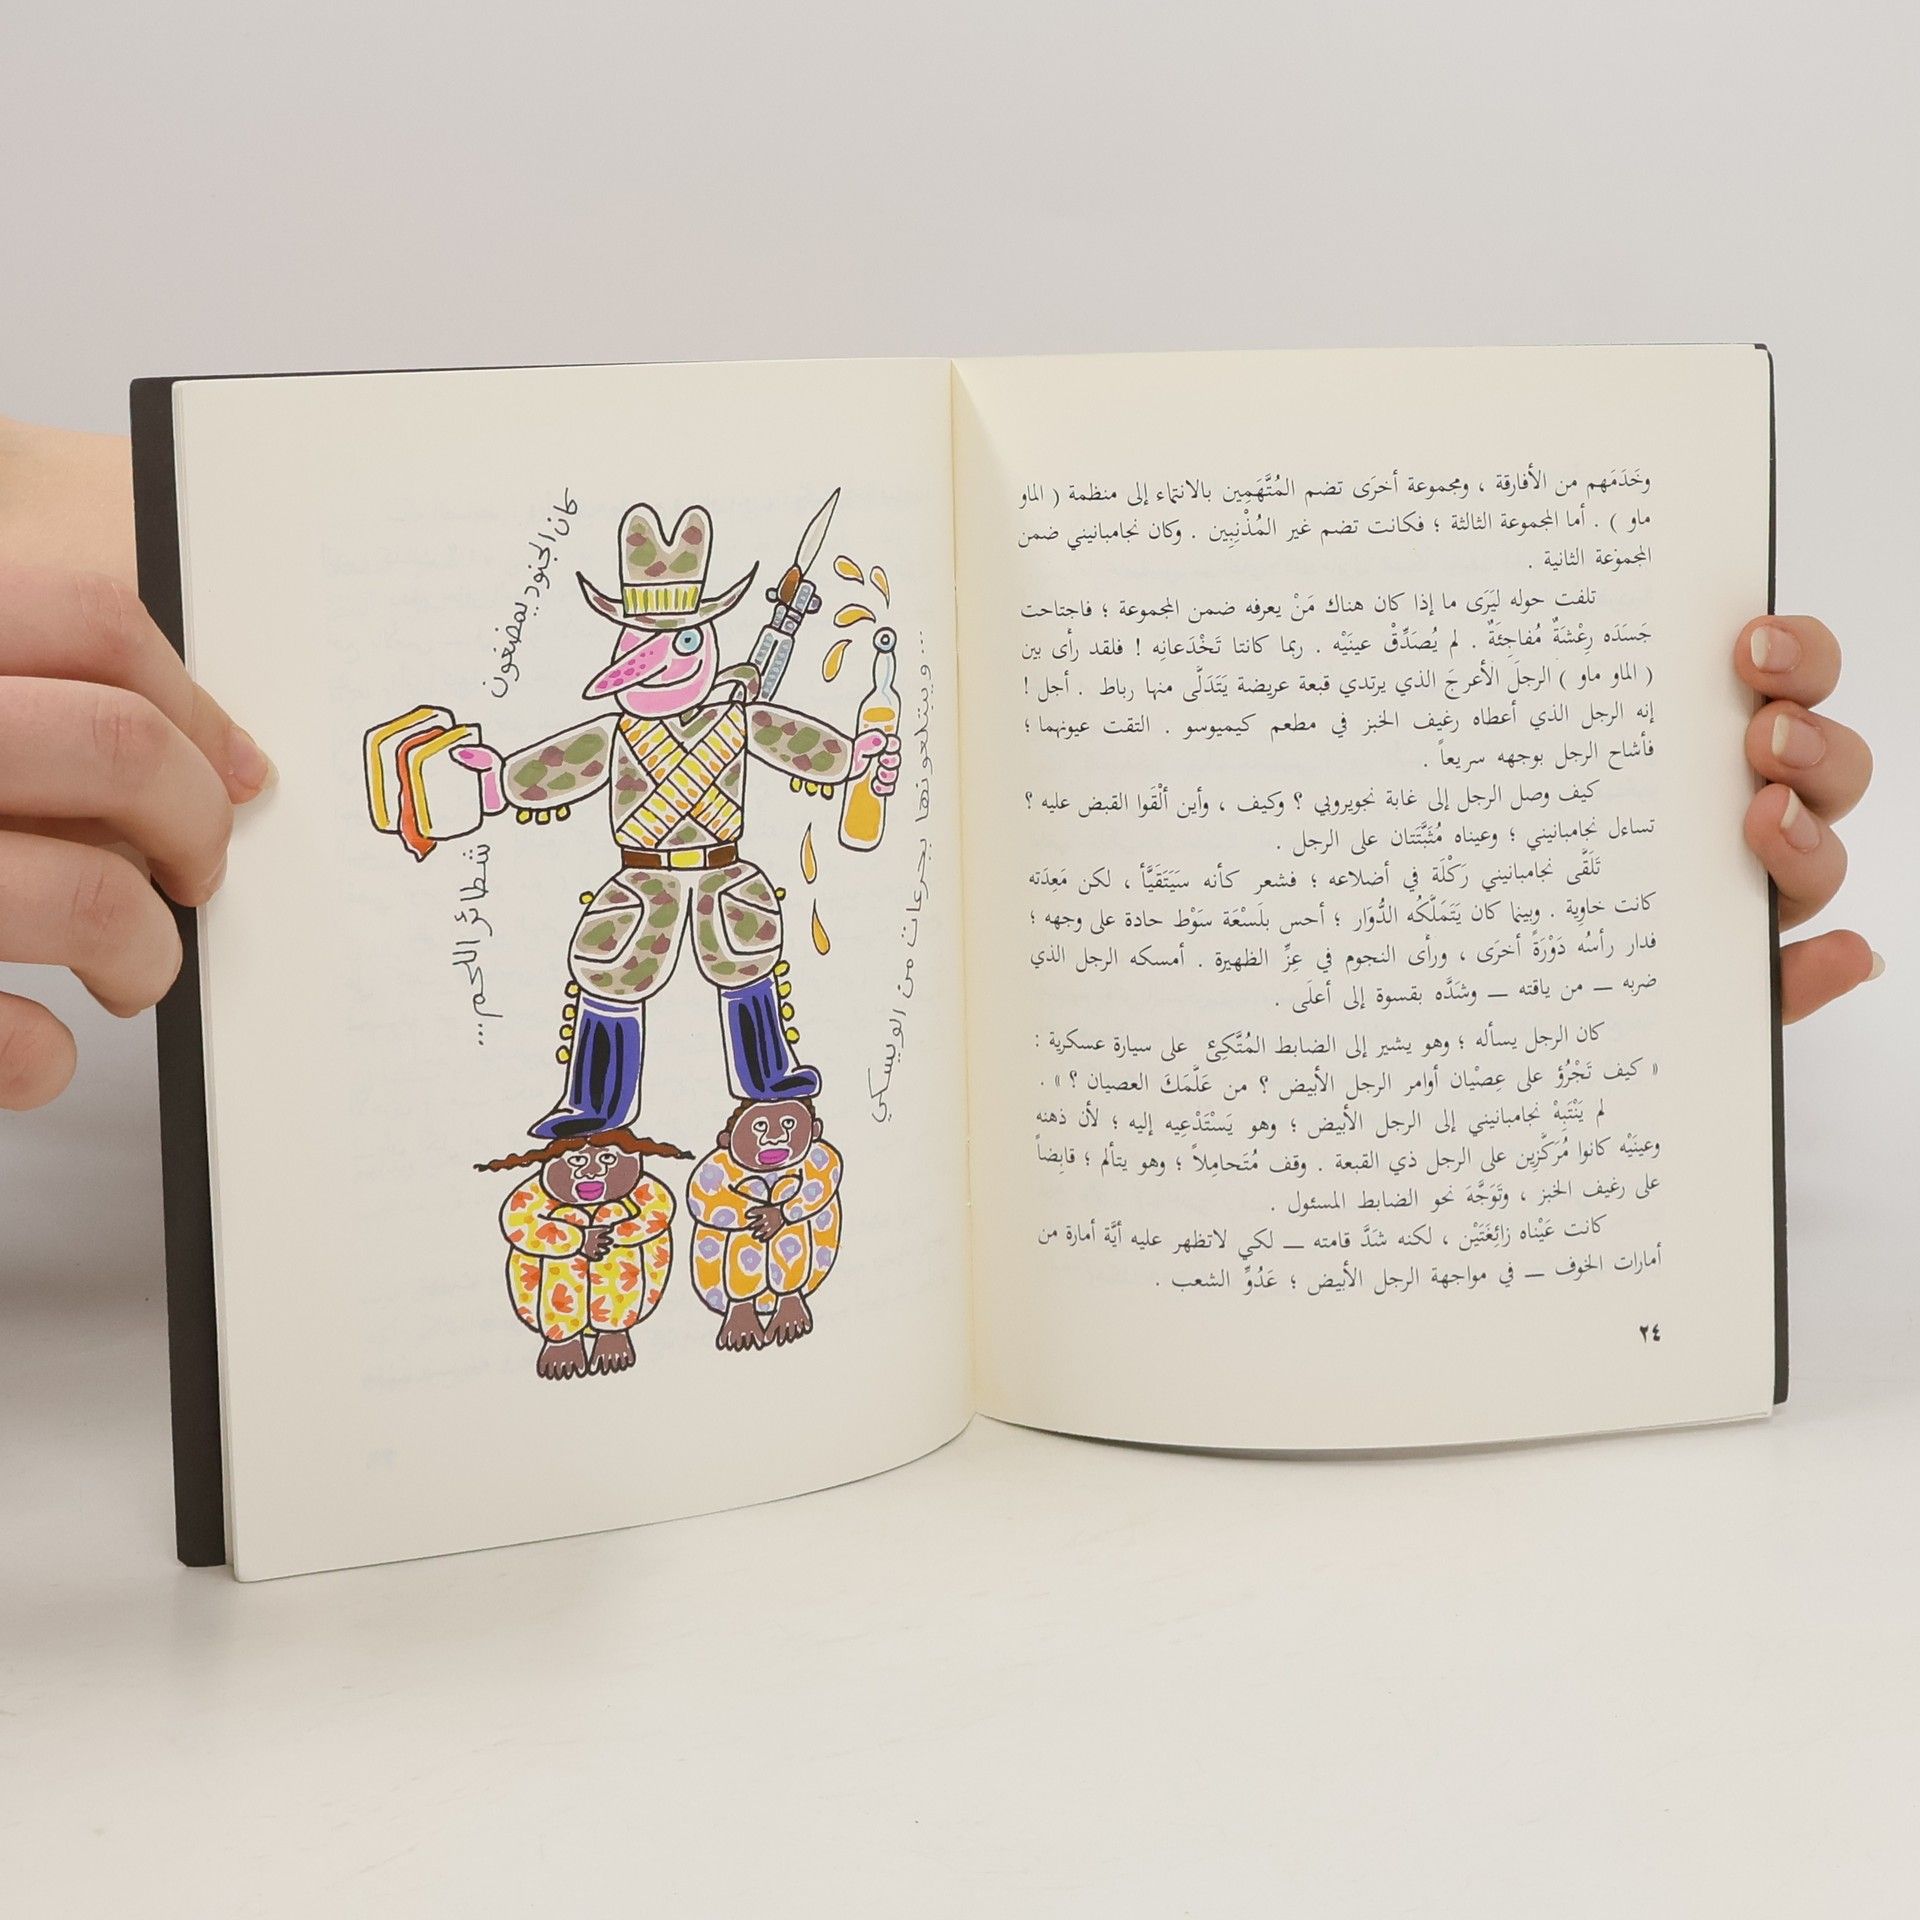 وخَدَمَهم من الأفارقة ، ومجموعة أخرَى تضم المُتَّهَمِين بالانتماء إلى منظمة ( الماو
ماو ) . أما المجموعة الثالثة ؛ فكانت تضم غير المُذْنِبِين . وكان نجامبانيني ضمن
المجموعة الثانية .
تلفت حوله ليَرَى ما إذا كان هناك مَنْ يعرفه ضمن المجموعة ؛ فاجتاحت
جَسَدَه رِعْشَةٌ مُفاجِئَةٌ . لم يُصَدِّقْ عينَيْه . ربما كانتا تَخْدَعانِه ! فلقد رأى بين
( الماو ماو ) الرجلَ الأعرجَ الذي يرتدي قبعة عريضة يَتَدَلَّى منها رباط . أجل !
إنه الرجل الذي أعطاه رغيف الخبز في مطعم كيميوسو . التقت عيونهما ؛
فأشاح الرجل بوجهه سريعاً .
كيف وصل الرجل إلى غابة نجويروبي ؟ وكيف ، وأين ألْقَوا القبض عليه ؟
تساءل نجامبانيني ؛ وعيناه مُثَبَّتَتان على الرجل .
تَلَقَّى نجامبانيني رَكْلَة في أضلاعه ؛ فشعر كأنه سَيَتَقَيَّأ ، لكن مَعِدَته
كانت خاوية . وبينما كان يَتَمَلَّكُه الدُّوَار ؛ أحس بلَسْعَة سَوْط حادة على وجهه ؛
فدار رأسُه دَوْرَةً أخرَى ، ورأى النجوم في عِزِّ الظهيرة . أمسكه الرجل الذي
ضربه — من ياقته — وشَدَّه بقسوة إلى أعلَى .
كان الرجل يسأله ؛ وهو يشير إلى الضابط المُتَّكِئ على سيارة عسكرية :
« كيف تَجْرُؤ على عِصْيان أوامر الرجل الأبيض ؟ من عَلَّمَكَ العصيان ؟ » .
لم يَنْتَبِهْ نجامبانيني إلى الرجل الأبيض ؛ وهو يَسْتَدْعِيه إليه ؛ لأن ذهنه
وعينَيْه كانوا مُرَكَّزِين على الرجل ذي القبعة . وقف مُتَحامِلاً ؛ وهو يتألم ؛ قابِضاً
على رغيف الخبز ، وتَوَجَّهَ نحو الضابط المسئول .
كانت عَيْناه زائِغَتَيْن ، لكنه شَدَّ قامته — لكي لاتظهر عليه أيَّة أمارة من
أمارات الخوف — في مواجهة الرجل الأبيض ؛ عَدُوِّ الشعب .
٢٤
كان الجنود يمضغون
شطائر اللحم...
... ويبتلعونها بجرعات من الويسكي